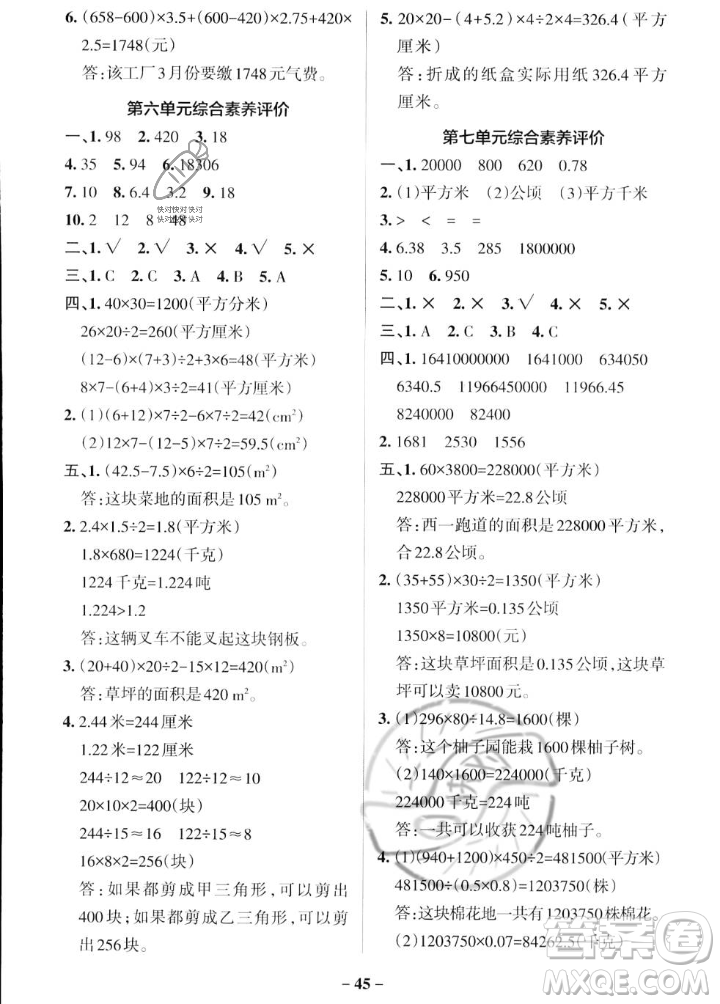 6. (658-600)×3.5+(600-420)×2.75+420×
2.5=1748(元)
答:该工厂3月份要缴1748元气费。
第六单元综合素养评价
一、1. 98 2. 420 3. 18
4. 35 5. 94 6. 18306
7. 10 8. 6.4 3.2 9. 18
10. 2 12 8 48
快对快对快对
快对快对快对
二、1. √ 2. √ 3. × 4. √ 5. ×
三、1. C 2. C 3. B 4. B 5. A
四、1. 40×30=1200(平方分米)
26×20÷2=260(平方厘米)
(12-6)×(7+3)÷2+12×3=66(平方厘米)
8×7-(8-2)×(7-2)÷2=41(平方厘米)
2. (1)(6+12)×7÷2-6×7÷2=42(cm²)
(2)12×7-(12-5)×7÷2=59.5(cm²)
五、1. (42.5-7.5)×6÷2=105(m²)
答:这块菜地的面积是105 m²。
2. 2.4×1.5÷2=1.8(平方米)
1.8×680=1224(千克)
1224千克=1.224吨
1.224>1.2
答:这辆叉车不能叉起这块钢板。
3. (20+40)×20÷2-15×12=420(m²)
答:草坪的面积是420 m²。
4. 2.44米=244厘米
1.22米=122厘米
244÷12≈20 122÷12≈10
20×10×2=400(块)
244÷15≈16 122÷15≈8
16×8×2=256(块)
答:如果都剪成甲三角形,可以剪出
400块;如果都剪成乙三角形,可以
剪出256块。
5. 20×20-(4+5.2)×4÷2×4=326.4(平方
厘米)
答:折成的纸盒实际用纸326.4平方
厘米。
第七单元综合素养评价
一、1. 20000 800 620 0.78
2. (1)平方米 (2)公顷 (3)平方千米
3. > < = =
4. 6.38 3.5 285 1800000
5. 10 6. 950
二、1. × 2. × 3. √ 4. × 5. ×
三、1. A 2. C 3. B 4. C
四、1. 16410000000 1641000 634050
6340.5 11966450000 11966.45
8240000 82400
2. 1681 2530 1556
五、1. 60×3800=228000(平方米)
228000平方米=22.8公顷
答:西一跑道的面积是228000平方米,
合22.8公顷。
2. (35+55)×30÷2=1350(平方米)
1350平方米=0.135公顷
1350×8=10800(元)
答:这块草坪的面积是0.135公顷,这块草
坪可以卖10800元。
3. (1)296×80÷14.8=1600(棵)
答:这个柚子园能栽1600棵柚子树。
(2)140×1600=224000(千克)
224000千克=224吨
答:一共可以收获224吨柚子。
4. (1)(940+1200)×450÷2=481500(平方米)
481500÷(0.5×0.8)=1203750(株)
答:这块棉花地一共有1203750株棉花。
(2)1203750×0.07=84262.5(千克)
答案圈
MXQE.COM
- 45 -